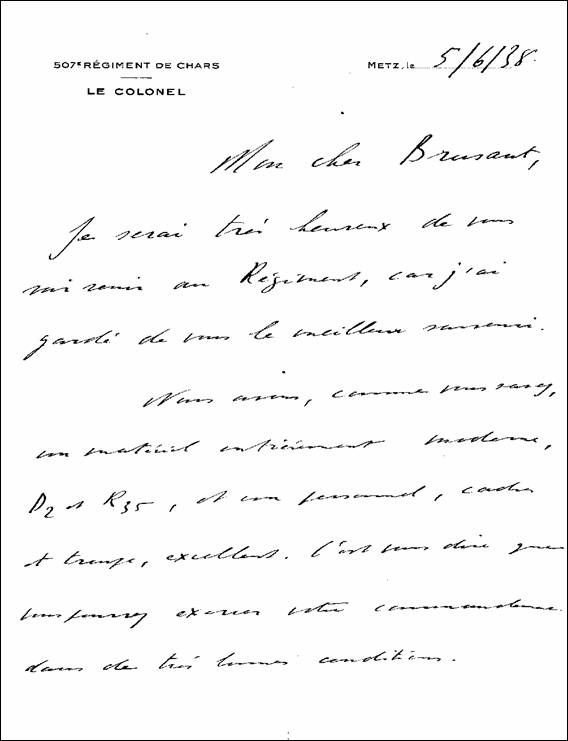 507E RÉGIMENT DE CHARS
LE COLONEL
METZ, le 5/6/38.
Mon cher Brusaut,
Je serai très heureux de vous
voir venir au Régiment, car j'ai
gardé de vous le meilleur souvenir.
Nous avons, comme vous savez,
un matériel entièrement moderne,
D2 et R35, et un personnel, cadres
et troupe, excellent. C'est vous dire que
vous pourrez exercer votre commandement
dans de très bonnes conditions.